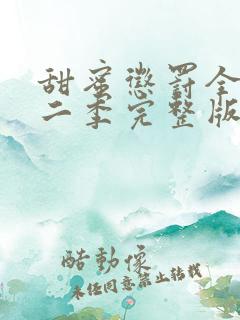 甜蜜懲罰全
二季完整版
酷動像
未经同意禁止转载